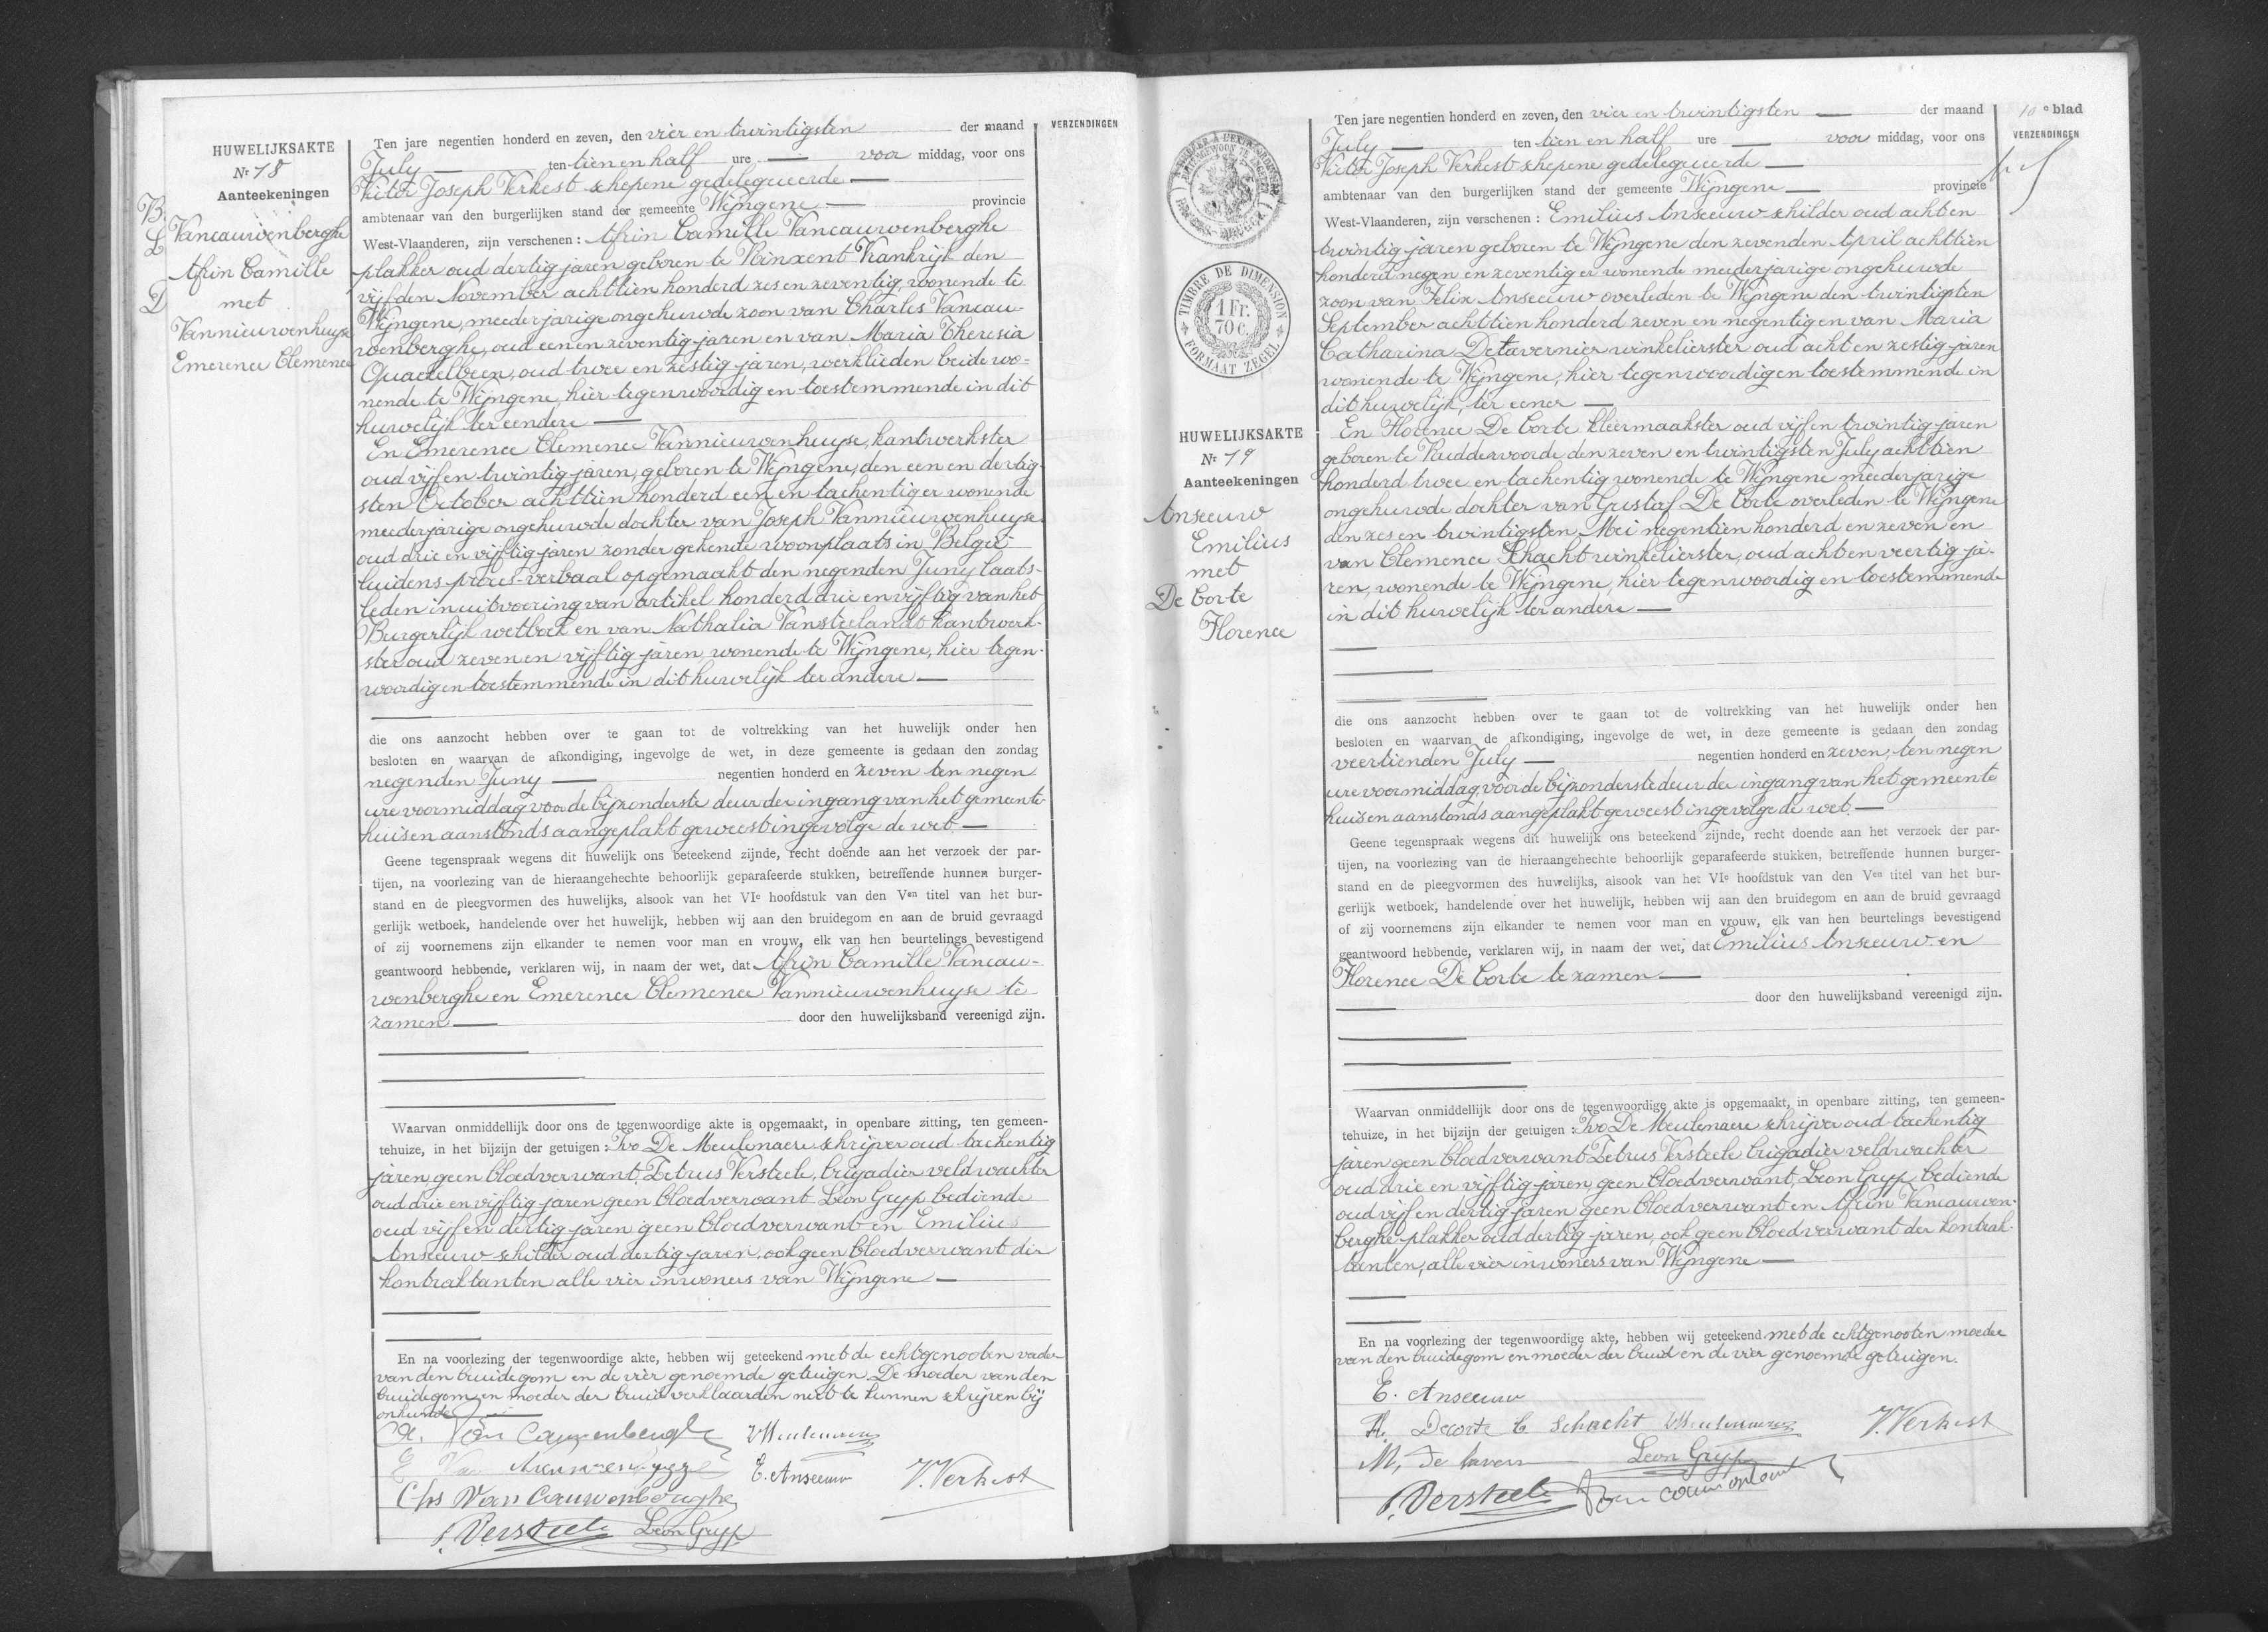 HUWELIJKSAKTE
Nr 18
Aanteekeningen
B.
L
D
Vancauwenberghe
Afrin Camille
met
Vannieuwenhuyse
Emerence Clemence
VERZENDINGEN
Ten jare negentien honderd en zeven, den vier en twintigsten — der maand
July — ten tien en half ure — voor middag, voor ons
Victor Joseph Verkest schepene gedelegueerde —
ambtenaar van den burgerlijken stand der gemeente Wijngene — provincie
West-Vlaanderen, zijn verschenen : Afrin Camille Vancauwenberghe
plakker oud dertig jaren geboren te Rinxent Frankrijk den
vijfden November achttien honderd zes en zeventig, wonende te
Wijngene, meederjarige ongehuwde zoon van Charles Vancau-
wenberghe, oud een en zeventig jaren en van Maria Theresia
Quackelbeen, oud twee en zestig jaren, werklieden beide wo-
nende te Wijngene, hier tegenwoordig en toestemmende in dit
huwelijk ter eendere —
En Emerence Clemence Vannieuwenhuyse, kantwerkster
oud vijf en twintig jaren, geboren te Wijngene, den een en dertig-
sten October achttien honderd een en tachentig er wonende
meederjarige ongehuwde dochter van Joseph Vannieuwenhuyse
oud drie en vijftig jaren zonder gekende woonplaats in België
luidens proces-verbaal opgemaakt den negenden Juny laats-
leden in uitvoering van artikel honderd drie en vijftig van het
Burgerlijk wetboek en van Nathalia Vansteelandt kantwerk-
ster oud zeven en vijftig jaren, wonende te Wijngene, hier tegen-
woordig en toestemmende in dit huwelijk ter andere —
die ons aanzocht hebben over te gaan tot de voltrekking van het huwelijk onder hen
besloten en waarvan de afkondiging, ingevolge de wet, in deze gemeente is gedaan den zondag
negenden Juny — negentien honderd en zeven ten negen
ure voormiddag voor de bijzonderste deur der ingang van het gemeente-
huis en aanstonds aangeplakt geweest ingevolge de wet. —
Geene tegenspraak wegens dit huwelijk ons beteekend zijnde, recht doende aan het verzoek der par-
tijen, na voorlezing van de hieraangehechte behoorlijk geparafeerde stukken, betreffende hunnen burger-
stand en de pleegvormen des huwelijks, alsook van het VIe hoofdstuk van den Ven titel van het bur-
gerlijk wetboek, handelende over het huwelijk, hebben wij aan den bruidegom en aan de bruid gevraagd
of zij voornemens zijn elkander te nemen voor man en vrouw, elk van hen beurtelings bevestigend
geantwoord hebbende, verklaren wij, in naam der wet, dat Afrin Camille Vancau-
wenberghe en Emerence Clemence Vannieuwenhuyse te
zamen — door den huwelijksband vereenigd zijn.
Waarvan onmiddellijk door ons de tegenwoordige akte is opgemaakt, in openbare zitting, ten gemeen-
tehuize, in het bijzijn der getuigen : Ivo De Meulenaere schrijver oud tachentig
jaren geen bloedverwant, Petrus Versteele, brigadier veldwachter
oud drie en vijftig jaren geen bloedverwant Leon Gryp bediende
oud vijf en dertig jaren geen bloedverwant en Emilius
Anseeuw schilder oud dertig jaren, ook geen bloedverwant der
kontraktanten alle vier inwoners van Wijngene —
En na voorlezing der tegenwoordige akte, hebben wij geteekend met de echtgenooten vader
van den bruidegom en de vier genoemde getuigen. De moeder van den
bruidegom en moeder der bruid verklaarden niet te kunnen schrijven bij
onkunde —
Van Cauwenberghe
E Van Nieuwenhuyze
E. Anseeuw
V. Verkest
Chs Van Cauwenberghe
P. Versteele Leon Gryp
10e blad
VERZENDINGEN
TIMBRE DE DIMENSION
1 Fr.
70 C.
FORMAAT ZEGEL
HUWELIJKSAKTE
Nr 19
Aanteekeningen
Anseeuw
Emilius
met
De Corte
Florence
Ten jare negentien honderd en zeven, den vier en twintigsten — der maand
July — ten tien en half ure — voor middag, voor ons
Victor Joseph Verkest schepene gedelegueerde —
ambtenaar van den burgerlijken stand der gemeente Wijngene — provincie
West-Vlaanderen, zijn verschenen : Emilius Anseeuw schilder oud acht en
twintig jaren geboren te Wijngene den zevenden April achttien
honderd negen en zeventig er wonende meederjarige ongehuwde
zoon van Felix Anseeuw overleden te Wijngene den twintigsten
September achttien honderd zeven en negentig en van Maria
Catharina Detavernier winkelierster oud acht en zestig jaren
wonende te Wijngene, hier tegenwoordig en toestemmende in
dit huwelijk, ter eener —
En Florence De Corte kleermaakster oud vijf en twintig jaren
geboren te Ruddervoorde den zeven en twintigsten July achttien
honderd twee en tachentig wonende te Wijngene meederjarige
ongehuwde dochter van Gustaf De Corte overleden te Wijngene
den zes en twintigsten Mei negentien honderd en zeven en
van Clemence Schacht winkelierster, oud acht en veertig ja-
ren, wonende te Wijngene, hier tegenwoordig en toestemmende
in dit huwelijk ter andere —
die ons aanzocht hebben over te gaan tot de voltrekking van het huwelijk onder hen
besloten en waarvan de afkondiging, ingevolge de wet, in deze gemeente is gedaan den zondag
veertienden July — negentien honderd en zeven, ten negen
ure voormiddag, voor de bijzonderste deur der ingang van het gemeente
huis en aanstonds aangeplakt geweest ingevolge de wet. —
Geene tegenspraak wegens dit huwelijk ons beteekend zijnde, recht doende aan het verzoek der par-
tijen, na voorlezing van de hieraangehechte behoorlijk geparafeerde stukken, betreffende hunnen burger-
stand en de pleegvormen des huwelijks, alsook van het VIe hoofdstuk van den Ven titel van het bur-
gerlijk wetboek, handelende over het huwelijk, hebben wij aan den bruidegom en aan de bruid gevraagd
of zij voornemens zijn elkander te nemen voor man en vrouw, elk van hen beurtelings bevestigend
geantwoord hebbende, verklaren wij, in naam der wet, dat Emilius Anseeuw en
Florence De Corte te zamen —
door den huwelijksband vereenigd zijn.
Waarvan onmiddellijk door ons de tegenwoordige akte is opgemaakt, in openbare zitting, ten gemeen-
tehuize, in het bijzijn der getuigen : Ivo De Meulenaere schrijver oud tachentig
jaren geen bloedverwant Petrus Versteele brigadier veldwachter
oud drie en vijftig jaren geen bloedverwant, Leon Gryp bediende
oud vijf en dertig jaren geen bloedverwant en Afrin Vancauwen-
berghe plakker oud dertig jaren, ook geen bloedverwant der kontrak-
tanten, alle vier inwoners van Wijngene —
En na voorlezing der tegenwoordige akte, hebben wij geteekend met de echtgenooten moeder
van den bruidegom en moeder der bruid en de vier genoemde getuigen.
E. Anseeuw
Decorte C Schacht
V. Verkest
M, De
Leon Gryp
P. Versteele